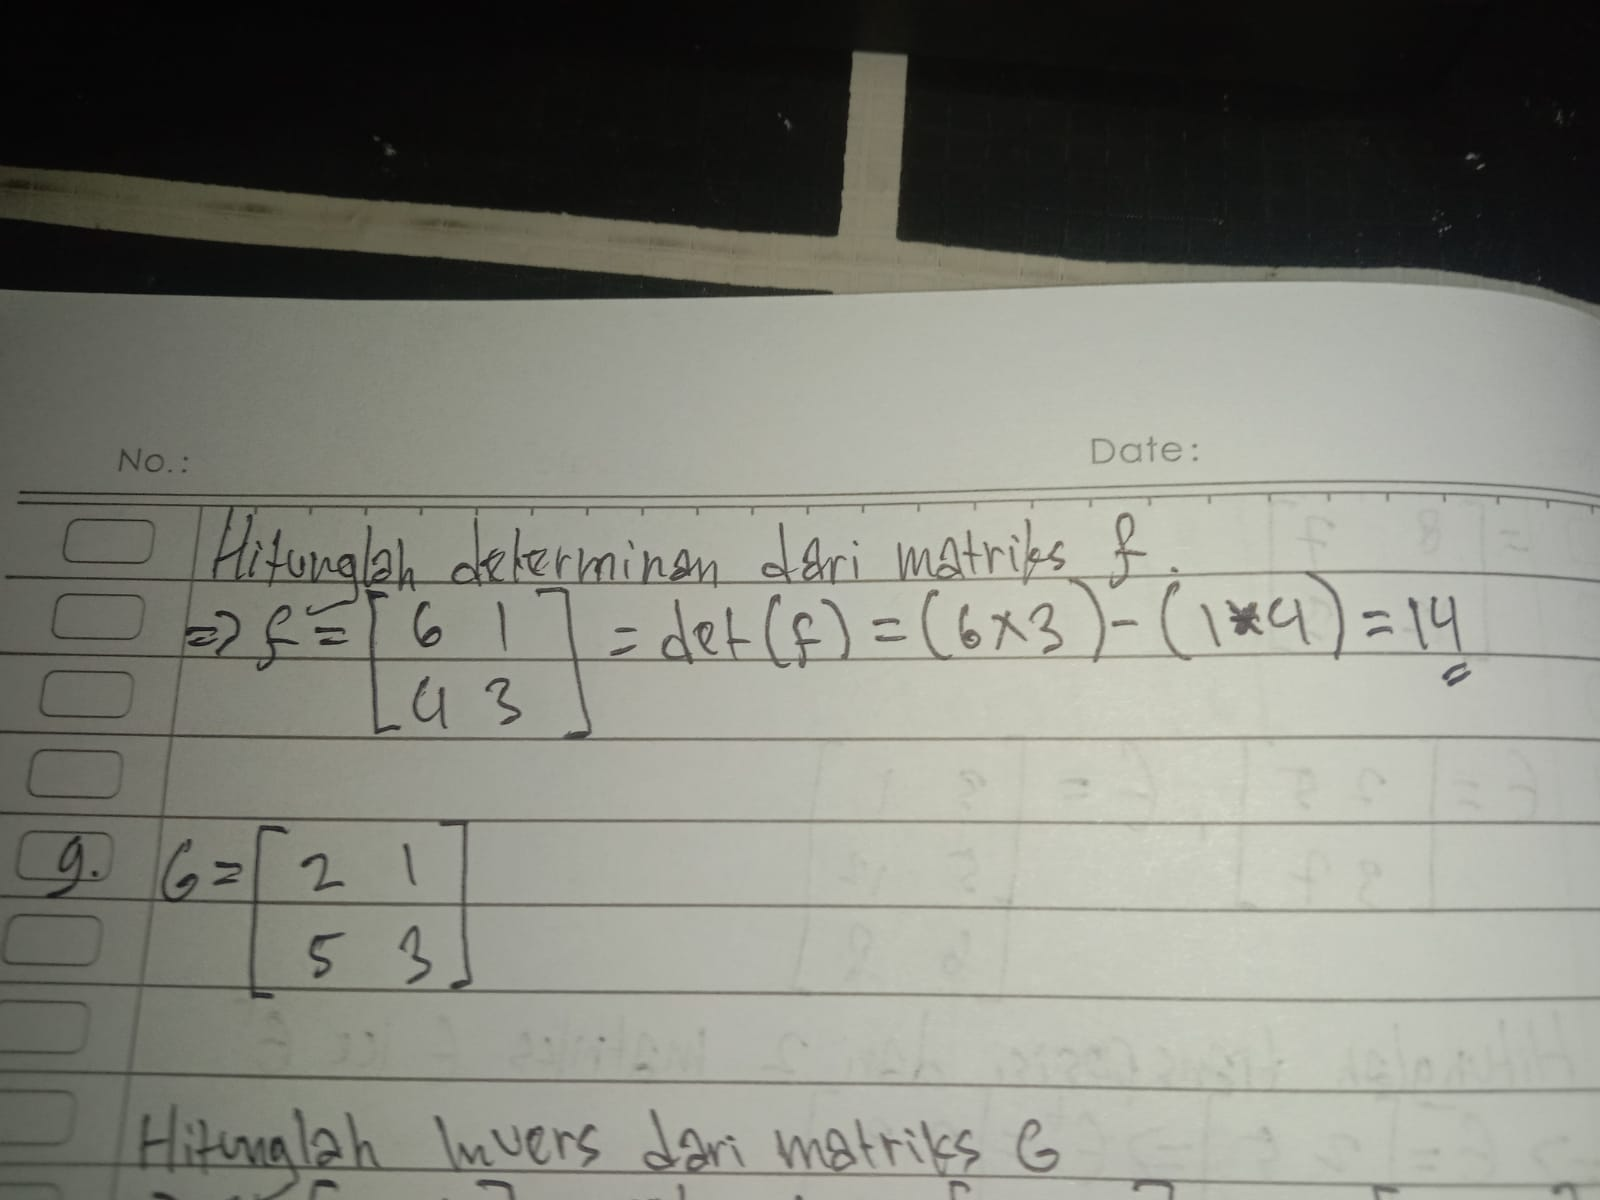 No.: Date:
Hitunglah determinan dari matriks f.
=> f = [ 6 1 ] = det (f) = (6x3) - (1*4) = 14
[ 4 3 ]
9. G = [ 2 1 ]
[ 5 3 ]
Hitunglah Invers dari matriks G